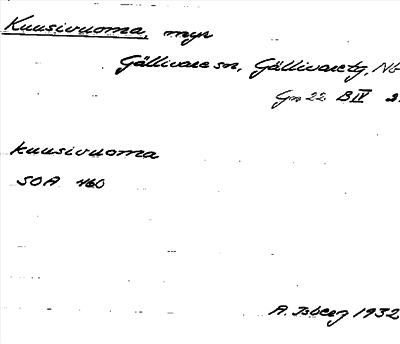 Kuusivuoma, myr
Gällivare sn, Gällivare tg, Nb
Gn 22 B IV
kuusivuoma
SOA 460
A. Isberg 1932